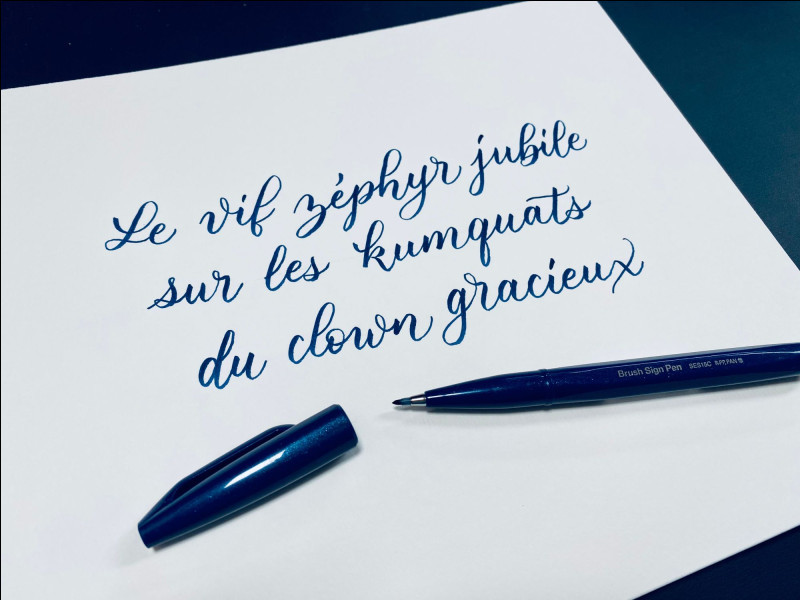 Le vif zéphyr jubile
sur les kumquats
du clown gracieux
Brush Sign Pen SES15C JAPAN